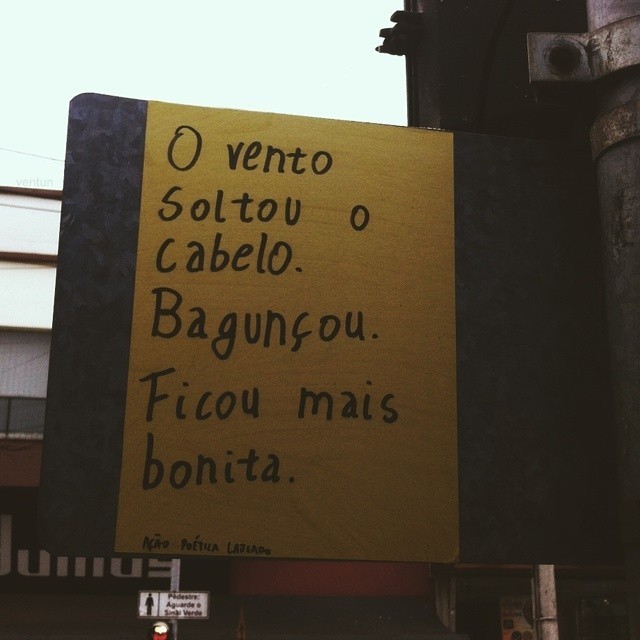 ventun
O vento
soltou o
cabelo.
Bagunçou.
Ficou mais
bonita.
AÇÃO POÉTICA
Pedestre:
Aguarde o
Sinal Verde